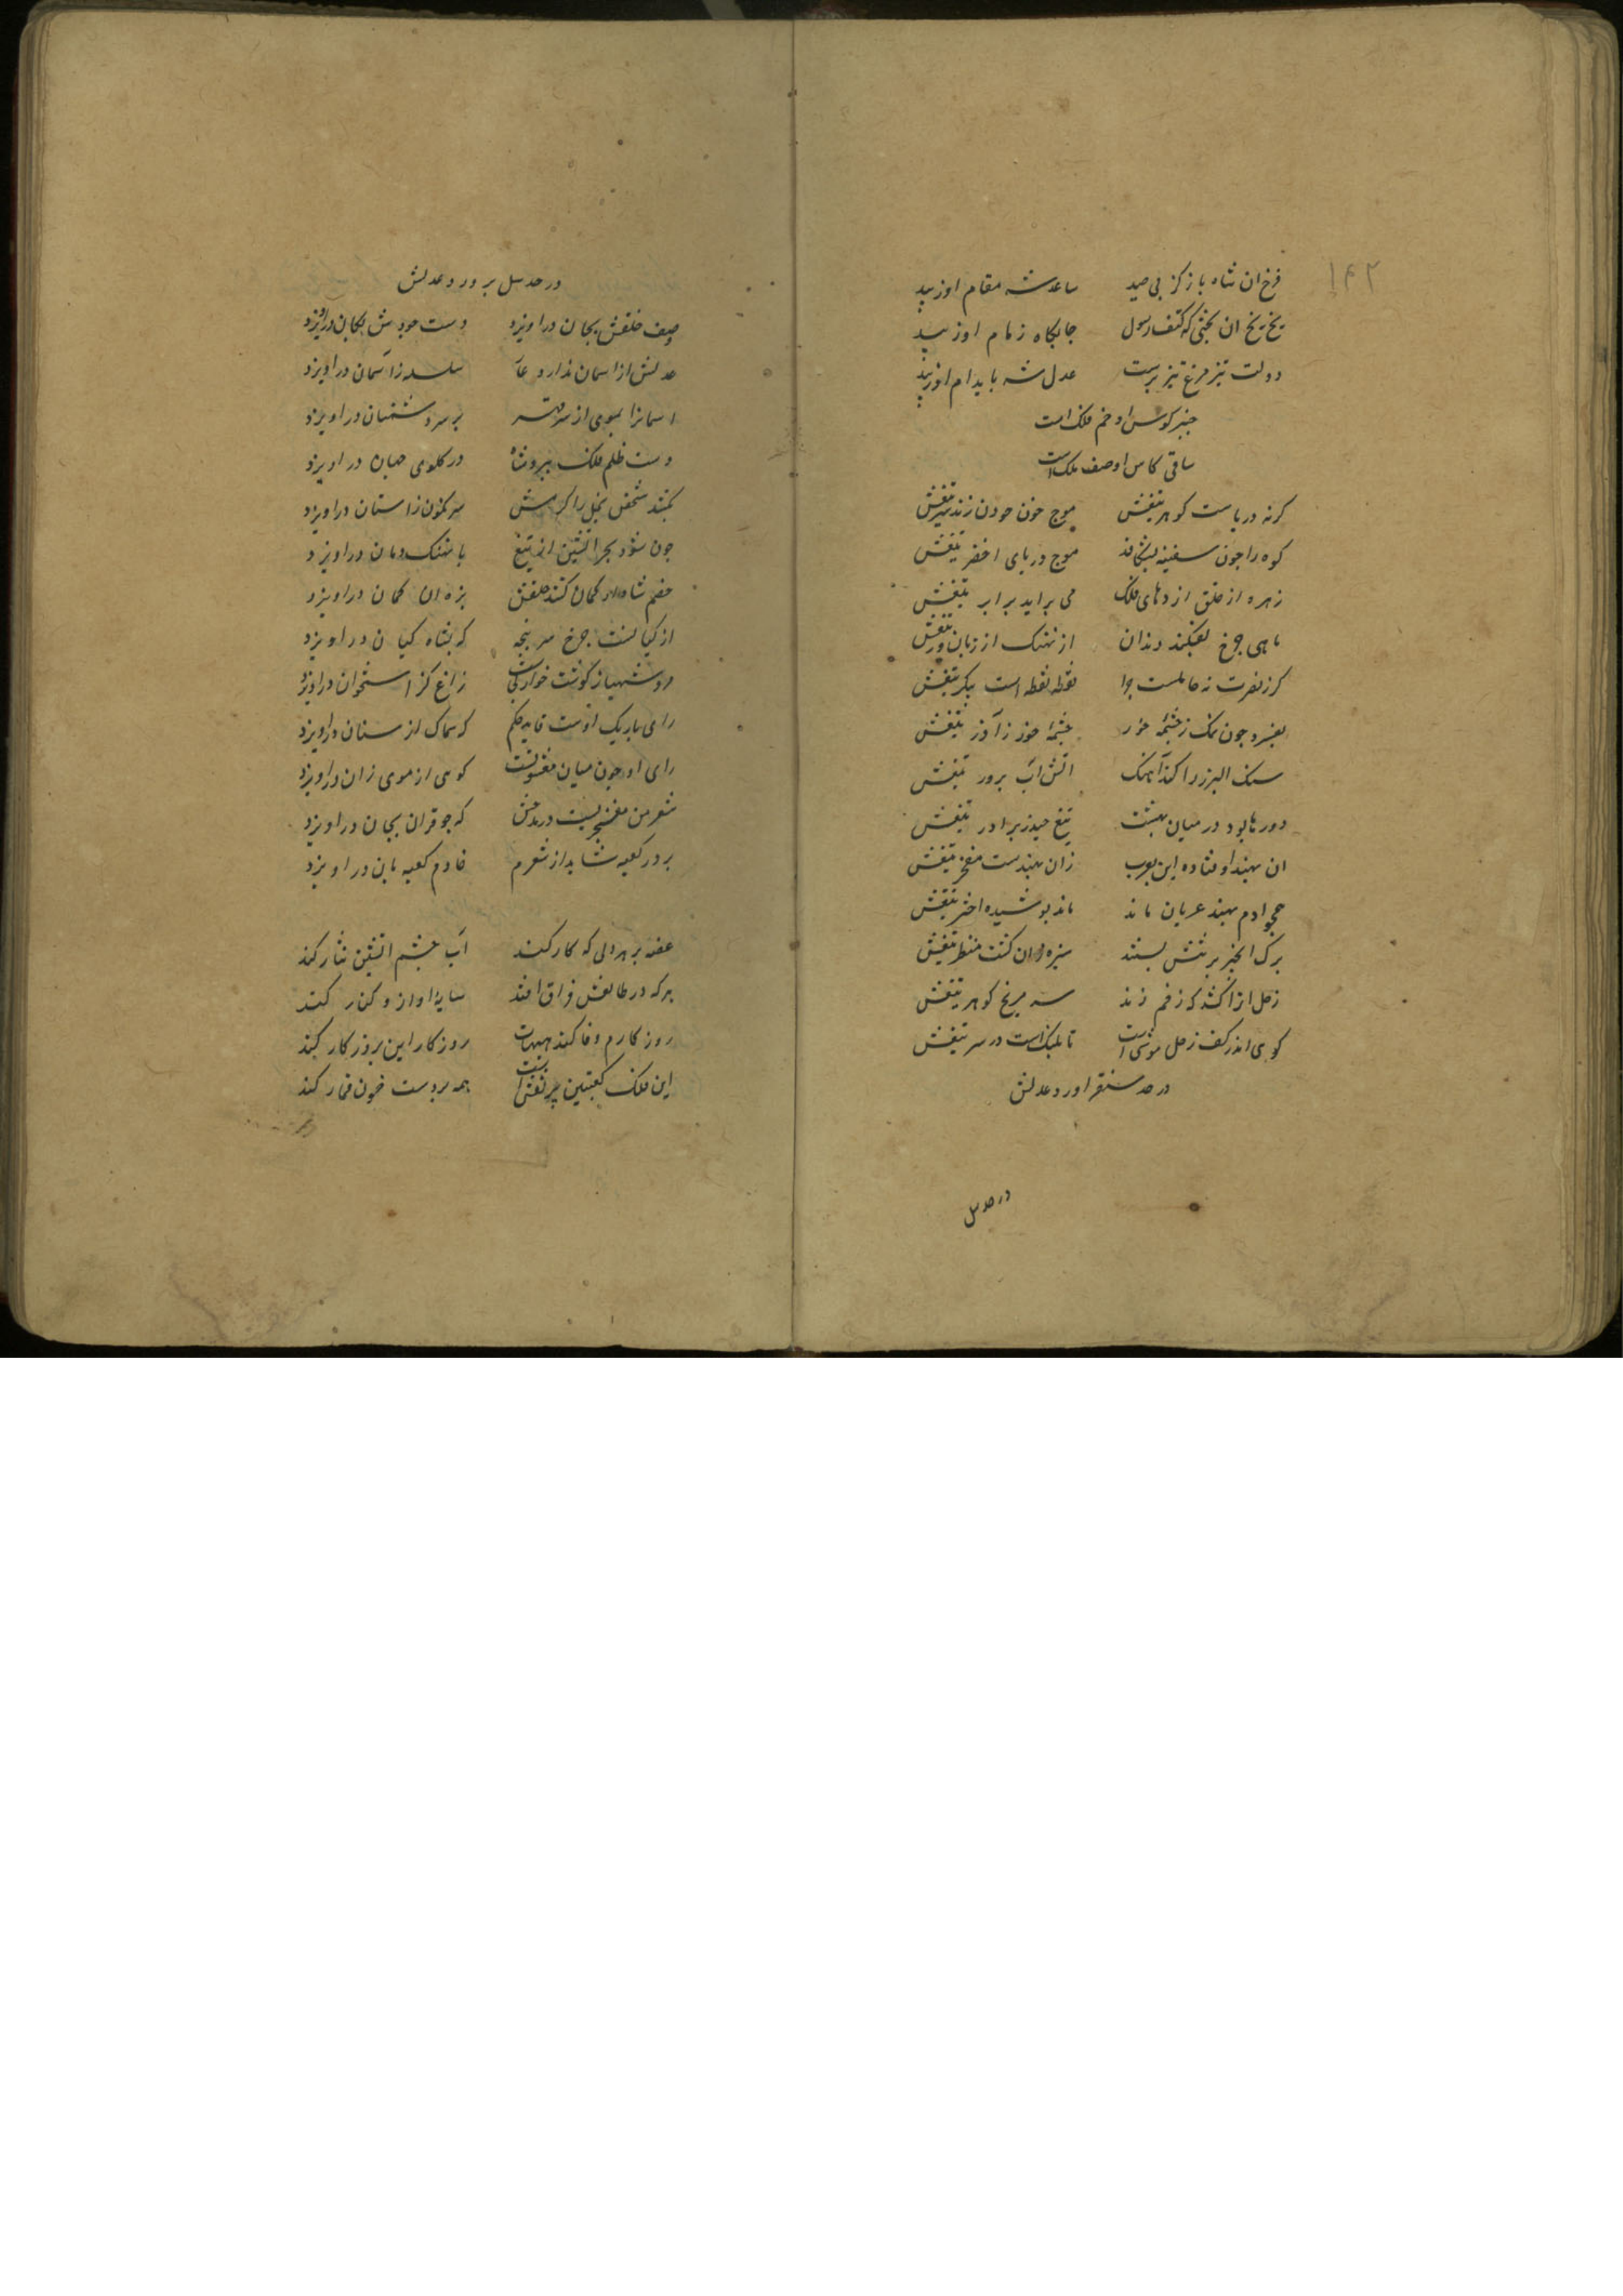 ۱۴۲
فرخ ان شاه باز کز پی صید ساعد شه مقام اوزیبد
بخ بخ ان بختیی که کتف رسول جایکاه زمام اوزیبد
دولت تیز مرغ تیز پرست عدل شه بایدام اوزیبد
چنبر کوس او خم فلک است
ساقی کاس او صف ملک است
کرنه دریاست کوهر تیغش موج خون چون زند
کوه را چون سفینه بشکافد موج دریای اخضر تیغش
زهره از حلق اژدهای فلک می براید برابر تیغش
ماهی چرخ بفکند دندان از نهنک از زبان ور تیغش
کرز نصرت نه حاملست چرا نقطه نقطه است پیکر تیغش
بفسرد چون نمک ز چشمه خور چشمه خور ز آذر تیغش
سنک البرز را کند آهنک اتش آب پرور تیغش
دورها بود در میان بهشت تیغ حیدر برادر تیغش
ان بهند اوفتاده این بعرب زان بهندست مفخر تیغش
همچو ادم بهند عریان ماند ماند پوشیده اختر تیغش
برک انجیر بر تنش بستند سبزه زان کشت منظر تیغش
زحل ازا کشد که زخم زند سه مریخ کوهر تیغش
کوی اندر کف زحل موشی است تا پلنک است در سر تیغش
در حد سنقر اورد عدلش
در حد سل
در حد سل برورد عدلش
وصف خلقش بجان دراویزد دست جودش بکان دراویزد
عدلش از اسمان ندارد عار سلسله ز آسمان دراویزد
اسمانرا بموی از سر بر سر دشمنان دراویزد
دست ظلم فلک ببرد شاه در کلوی جهان دراویزد
بکشد شخص بخل را کرمش سرنکون ز استان دراویزد
چون شود بحر اتشین از تیغ با نهنک دمان دراویزد
خصم شاه ار کمان کشد حلقش بزه ان کمان دراویزد
از کیا نست چرخ سر پنجه که بشاه کیان دراویزد
مرد شهباز کوشت خوارست زاغ کز استخوان دراویزد
رای باریک اوست قاید حکم که سماک از سنان دراویزد
رای او چون میان معشوقست کوهی از موی زان دراویزد
شعر من معنبریست در مدحش که چو قران بجان دراویزد
بر در کعبه شاید از شعرم خادم کعبه بان دراویزد
غصه بر هر دلی که کار کند آب چشم اتشین نثار کند
هرکه در طالعش فراق افتد سایه او ازو کنار کند
روزکارم وفا کند هیهات روزکار این بروزکار کند
این فلک کعبتین بی نقش است همه بر دست خون قمار کند